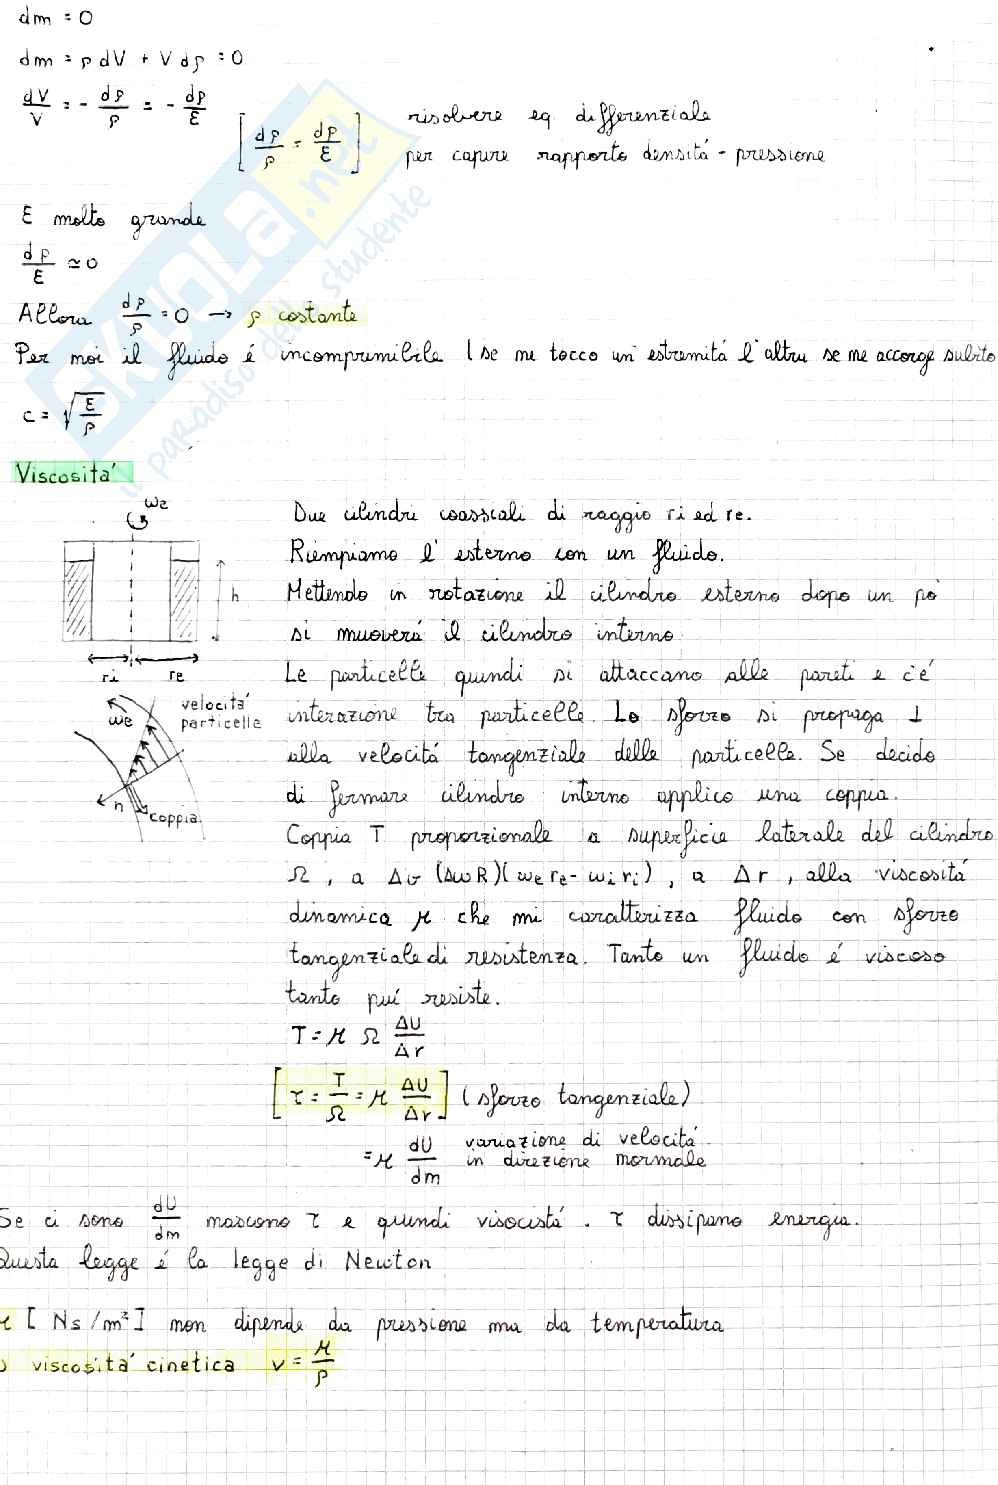 dm = 0
dm = ρ dV + V dρ = 0
dV/V = - dρ/ρ = - dp/ε
[dρ/ρ = dp/ε] risolvere eq differenziale
per capire rapporto densitá - pressione
ε molto grande
dp/ε ≃ 0
Allora dρ/ρ = 0 → ρ costante
Per noi il fluido é incomprimibile (se ne tocco un estremitá l'altra se ne accorge subito
c = √ε/ρ
SKUOLA.net
il paradiso dello studente
Viscositá
ωe
h
ri re
velocitá
particelle
ωe
n
coppia
Due cilindri coassiali di raggio ri ed re.
Riempiamo l'esterno con un fluido.
Mettendo in rotazione il cilindro esterno dopo un pó
si muoverá il cilindro interno
Le particelle quindi si attaccano alle pareti e c'é
interazione tra particelle. Lo sforzo si propaga ⊥
alla velocitá tangenziale delle particelle. Se decido
di fermare cilindro interno applico una coppia.
Coppia T proporzionale a superficie laterale del cilindro
Ω, a Δv (ΔωR)(ωe re - ωi ri), a Δr, alla viscositá
dinamica μ che mi caratterizza fluido con sforzo
tangenziale di resistenza. Tanto un fluido é viscoso
tanto puí resiste.
T = μ Ω ΔU/Δr
[τ = T/Ω = μ ΔU/Δr] (sforzo tangenziale)
= μ dU/dn variazione di velocitá
in direzione normale
Se ci sono dU/dn nascono τ e quindi visocistá. τ dissipano energia.
Questa legge é la legge di Newton
μ [Ns/m²] non dipende da pressione ma da temperatura
ν viscositá cinetica ν = μ/ρ